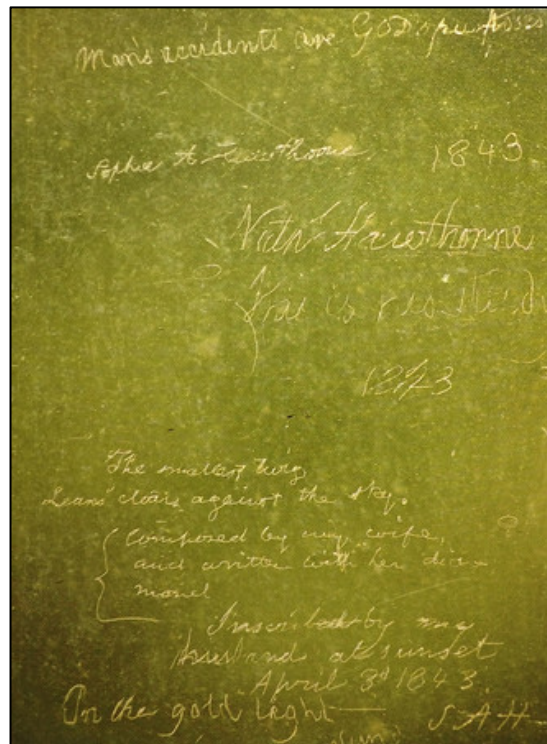 Man's accidents are GOD's purposes
Sophia A. Hawthorne 1843
Nath Hawthorne
This is his study
1843
The smallest twig
Leans clear against the sky.
Composed by my wife,
and written with her dia-
mond
Inscribed by my
husband at sunset
April 3d 1843.
On the gold light — S A H